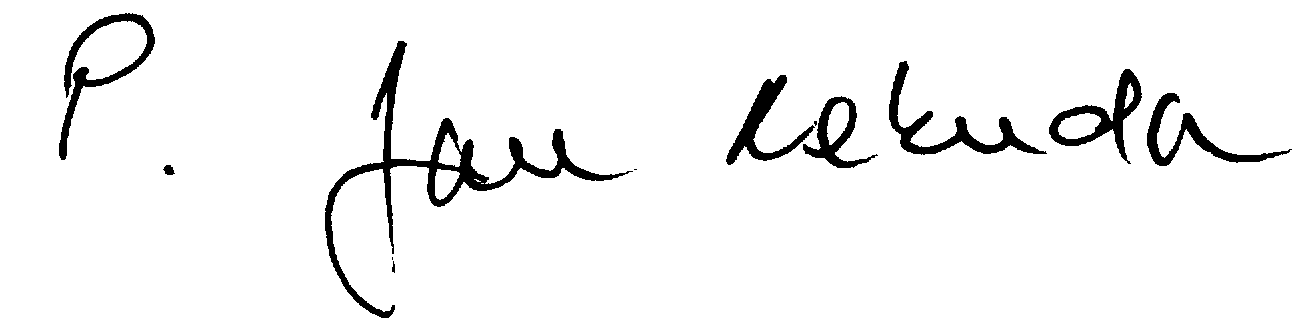 P. Jan Rekuda